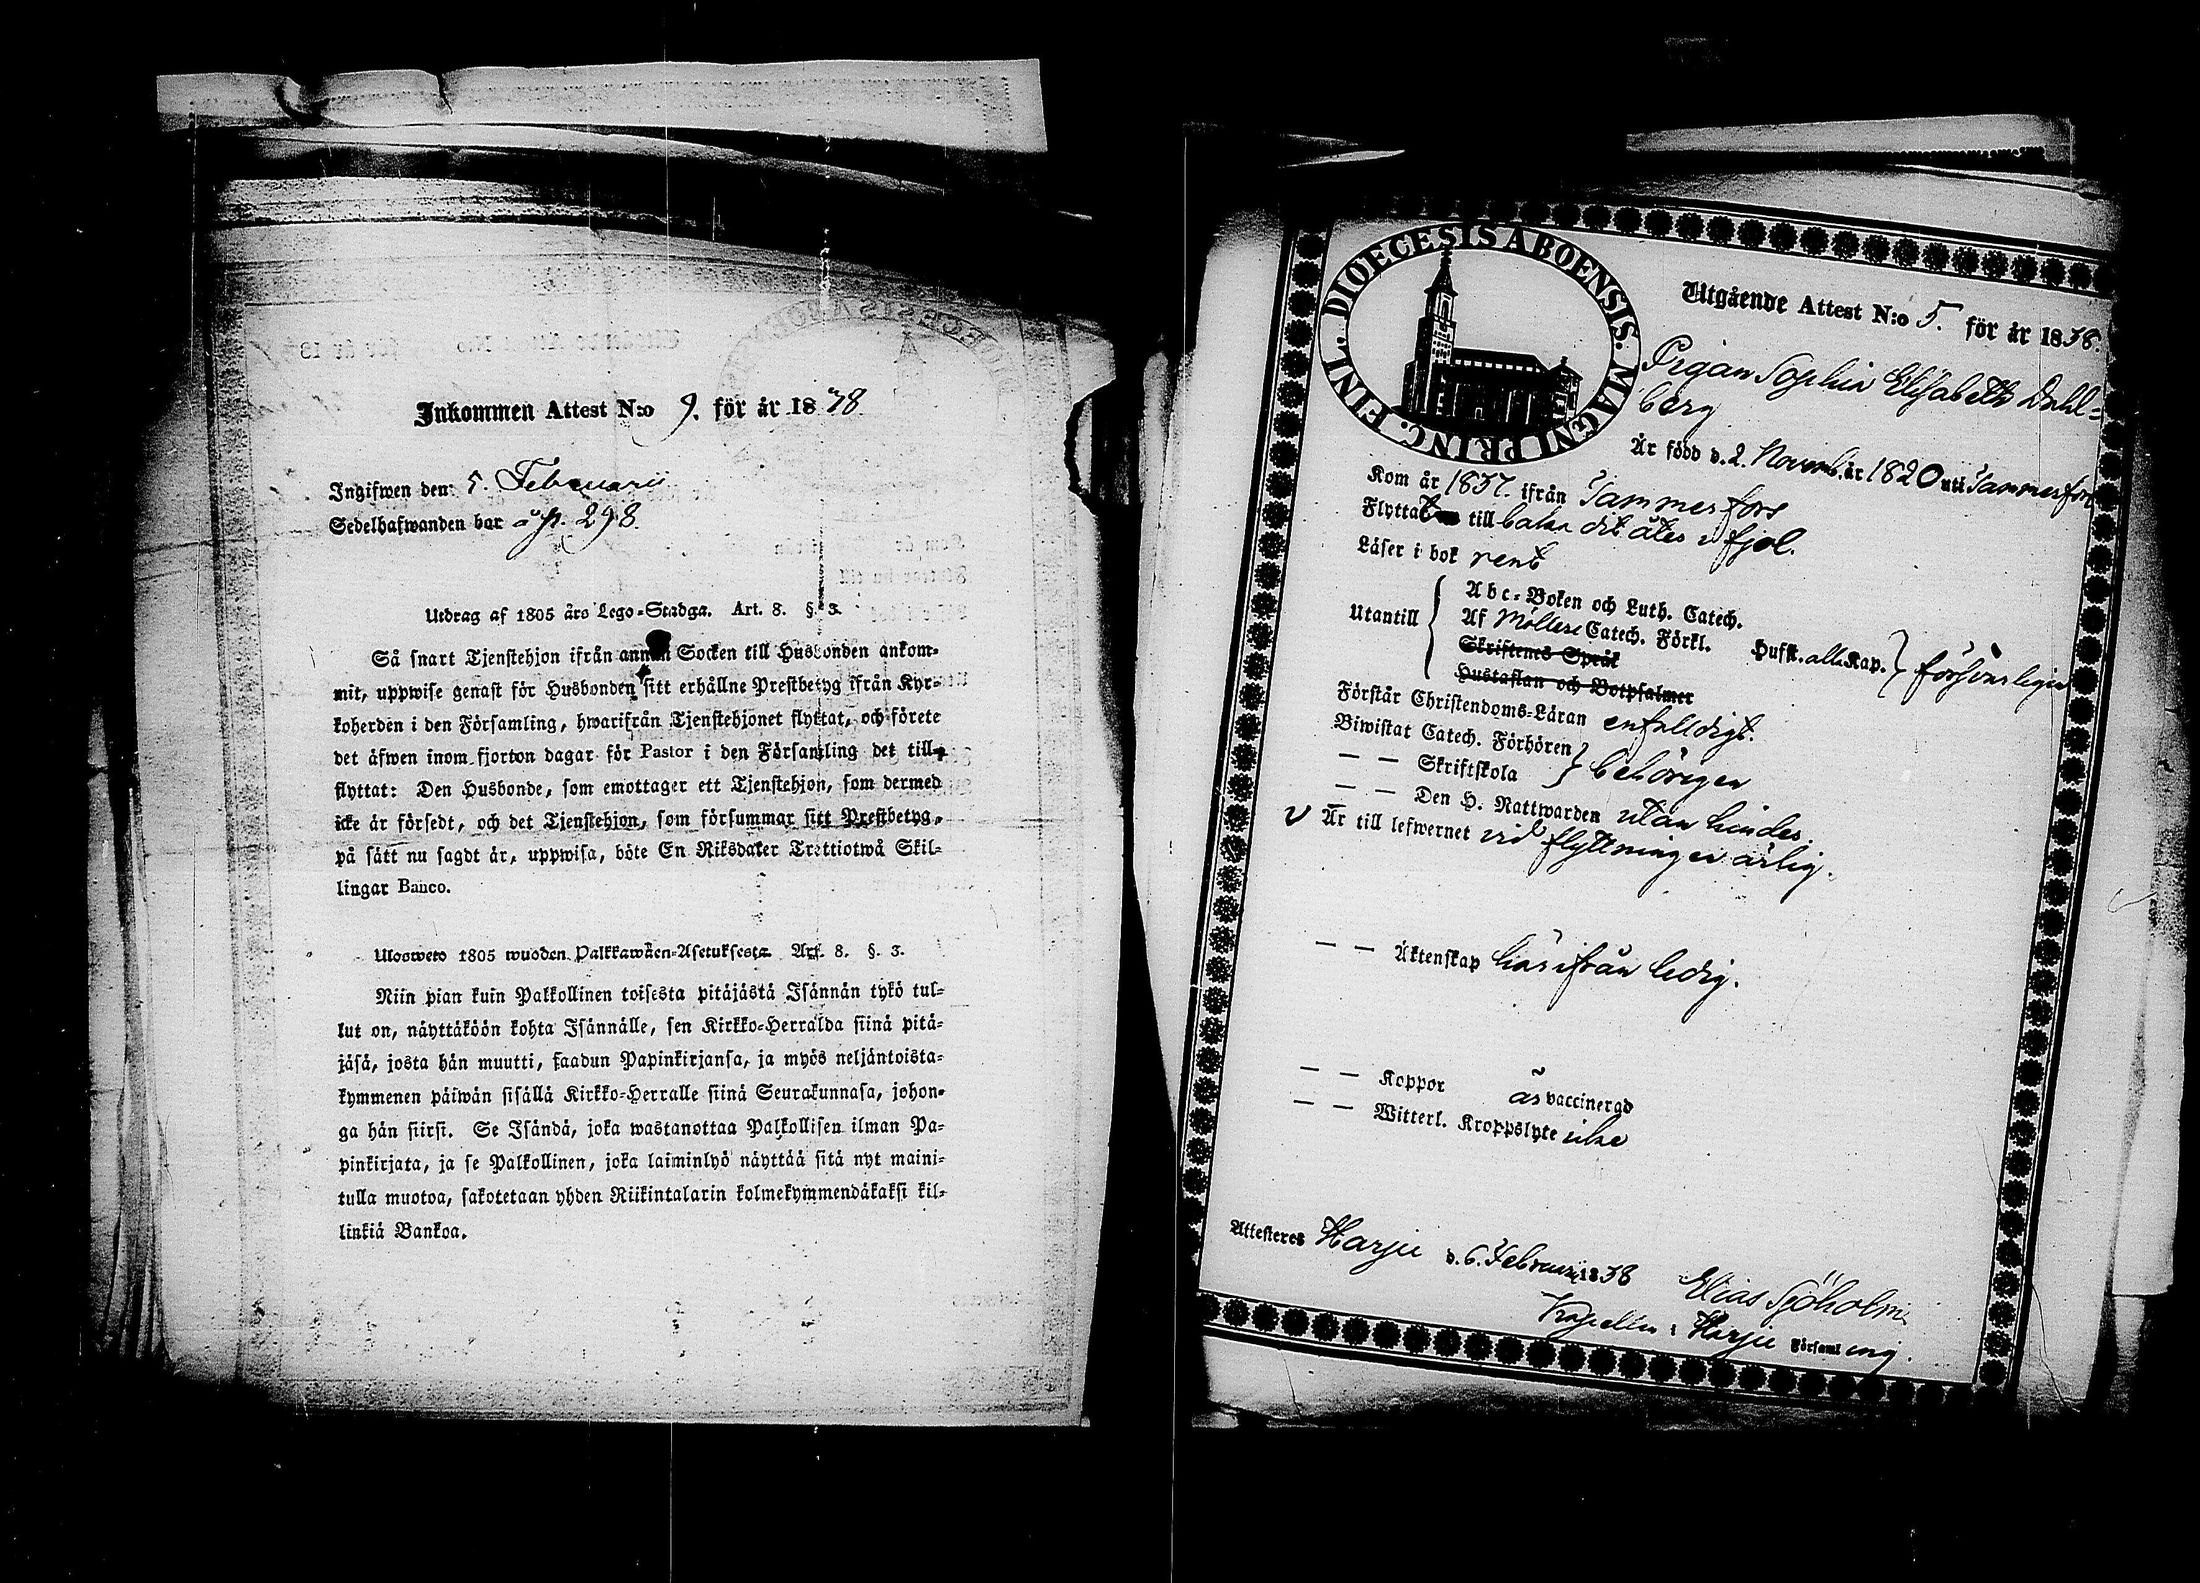 Inkommen Attest N:o 9. för år 1838
Ingifwen den: 5. Februarii
Sedelhafwanden bor å p. 298
Utdrag af 1805 års Lego-Stadga. Art. 8. §. 3.
Så snart Tjenstehjon ifrån annan Socken till Husbonden ankom-
mit, uppwise genast för Husbonden sitt erhållne Prestbetyg ifrån Kyr-
koherden i den Församling, hwarifrån Tjenstehjonet flyttat, och förete
det äfwen inom fjorton dagar för Pastor i den Församling det till-
flyttat: Den Husbonde, som emottager ett Tjenstehjon, som dermed
icke är försedt, och det Tjenstehjon, som försummar sitt Prestbetyg,
på sätt nu sagdt är, uppwisa, böte En Riksdaler Trettiotwå Skil-
lingar Banco.
Ulosweto 1805 wuoden Palkkawäen-Asetuksesta Art. 8. §. 3.
Niin pian kuin Palkollinen toisesta pitäjästä Isännän tykö tul-
lut on, näyttäköön kohta Isännälle, sen Kirkko-Herralda siinä pitä-
jäsä, josta hän muutti, saadun Papinkirjansa, ja myös neljäntoista-
kymmenen päiwän sisällä Kirkko-Herralle siinä Seurakunnasa, johon-
ga hän siirsi. Se Isändä, joka wastanottaa Palkollisen ilman Pa-
pinkirjata, ja se Palkollinen, joka laiminlyö näyttää sitä nyt maini-
tulla muotoa, sakotetaan yhden Riikintalarin kolmekymmendäkaksi kil-
linkiä Bankoa.
DIOECESIS ABOENSIS. MAGNI PRINC. FINL.
Utgående Attest N:o 5. för år 1838.
Pigan Sophia Elisabeth Dahl-
berg
Är född d. 2. Novemb. år 1820 uti Tammerfors
Kom år 1837. ifrån Tammerfors
Flyttat till baka dit åter i fjol.
Läser i bok rent
Utantill
Abc-Boken och Luth. Catech.
Af Möllers Catech. Förkl. Husk. alla Kap. försvarligen
Skriftenes Språk
Hustaflan och Botpsalmer
Förstår Christendoms-Läran enfalldigt.
Biwistat Catech. Förhören
— — Skriftskola behörigen
— — Den H. Nattwarden utan hinder.
v Är till lefwernet vid flyttningen ärlig.
— — Äktenskap härifrån ledig.
— — Koppor är vaccinerad
— — Witterl. Kroppslyte icke
Attesteres Harju d. 6. Februarii 1838 Elias Sjöholm
Kapellan i Harju Församling.